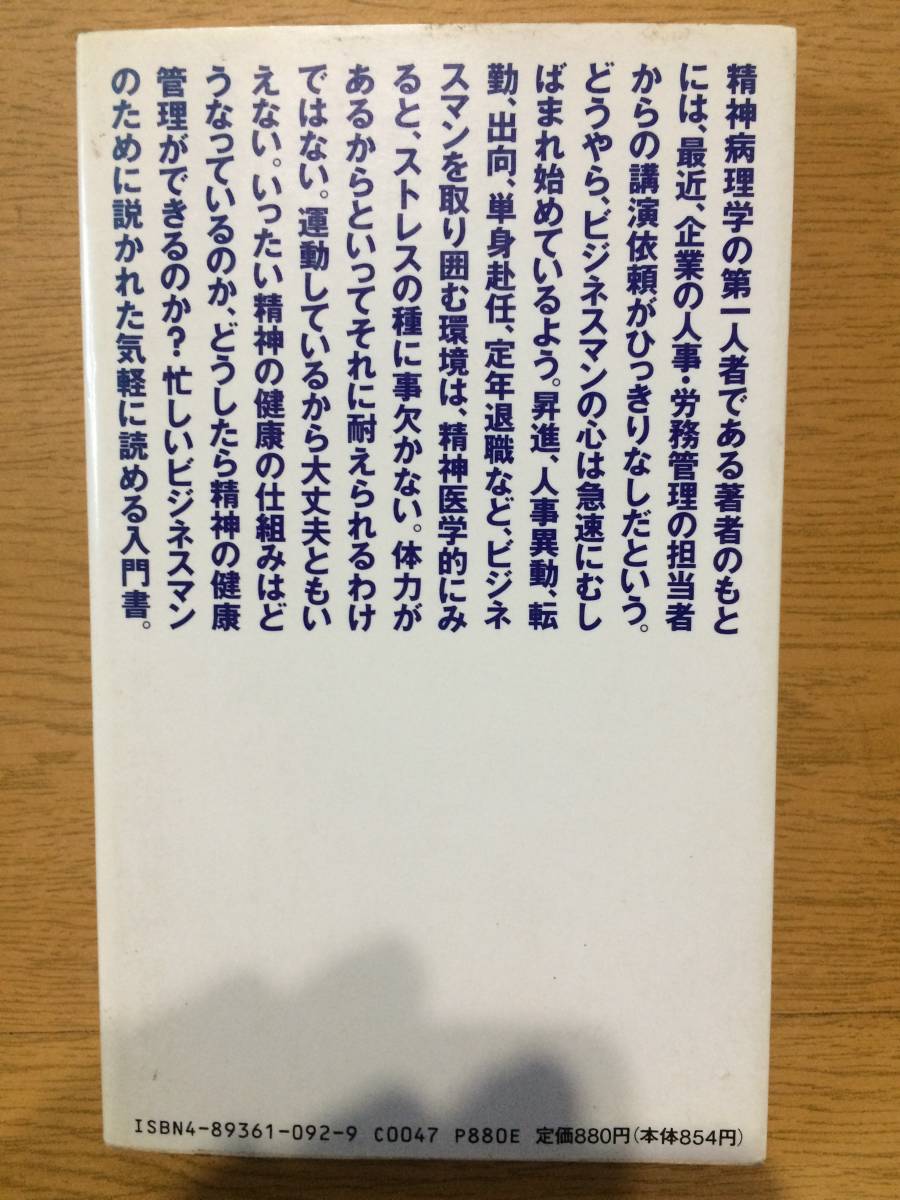 精神病理学の第一人者である著者のもと
には、最近、企業の人事・労務管理の担当者
からの講演依頼がひっきりなしだという。
どうやら、ビジネスマンの心は急速にむし
ばまれ始めているよう。昇進、人事異動、転
勤、出向、単身赴任、定年退職など、ビジネ
スマンを取り囲む環境は、精神医学的にみ
ると、ストレスの種に事欠かない。体力が
あるからといってそれに耐えられるわけ
ではない。運動しているから大丈夫ともい
えない。いったい精神の健康の仕組みはど
うなっているのか、どうしたら精神の健康
管理ができるのか？忙しいビジネスマン
のために説かれた気軽に読める入門書。
ISBN4-89361-092-9 C0047 P880E 定価880円(本体854円)